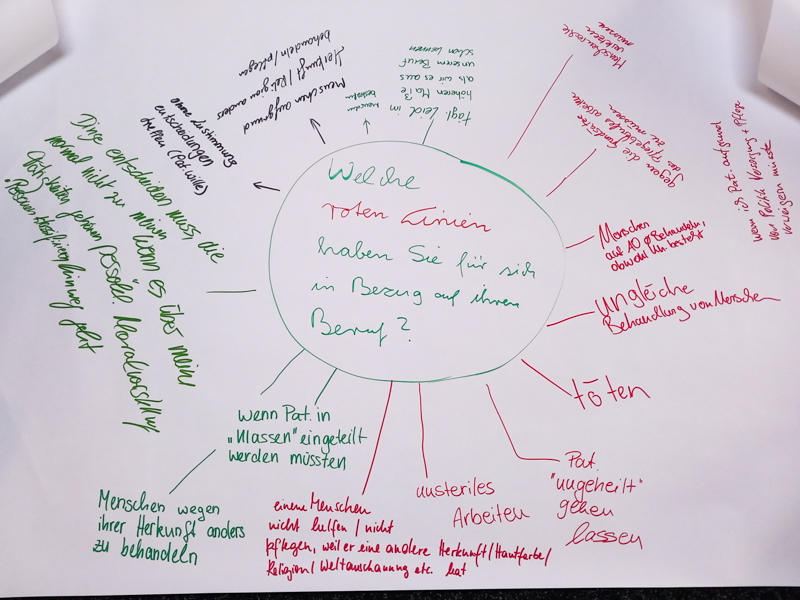 Welche
roten Linien
haben Sie für sich
in Bezug auf ihren
Beruf?
Menschenrechte
verletzen
müssen
gegen die Grundsätze
des Pflegeberufes arbeiten
zu müssen
wenn ich Pat. aufgrund
von Politik Versorgung + Pflege
verweigern müsste
Menschen
obwohl Ihn. besteht
ungleiche
Behandlung von Menschen
töten
Pat.
"ungeheilt"
gehen
lassen
unsteriles
Arbeiten
einem Menschen
nicht helfen / nicht
pflegen, weil er eine andere Herkunft/Hautfarbe/
Religion/Weltanschauung etc. hat
wenn Pat. in
„Klassen" eingeteilt
werden müssten
Menschen wegen
ihrer Herkunft anders
zu behandeln
Dinge entscheiden muss, die
normal nicht zu meinen
Tätigkeiten gehören
wenn es über meine
persönl. Moralvorstellung
hinweg geht
ohne Zustimmung
entscheidungen
treffen (Pat. wille)
Menschen aufgrund
Herkunft / Religion anders
behandeln / pflegen
Menschen
tägl. Leid im
höheren Maße
als wir es aus
unserem Beruf
schon kennen